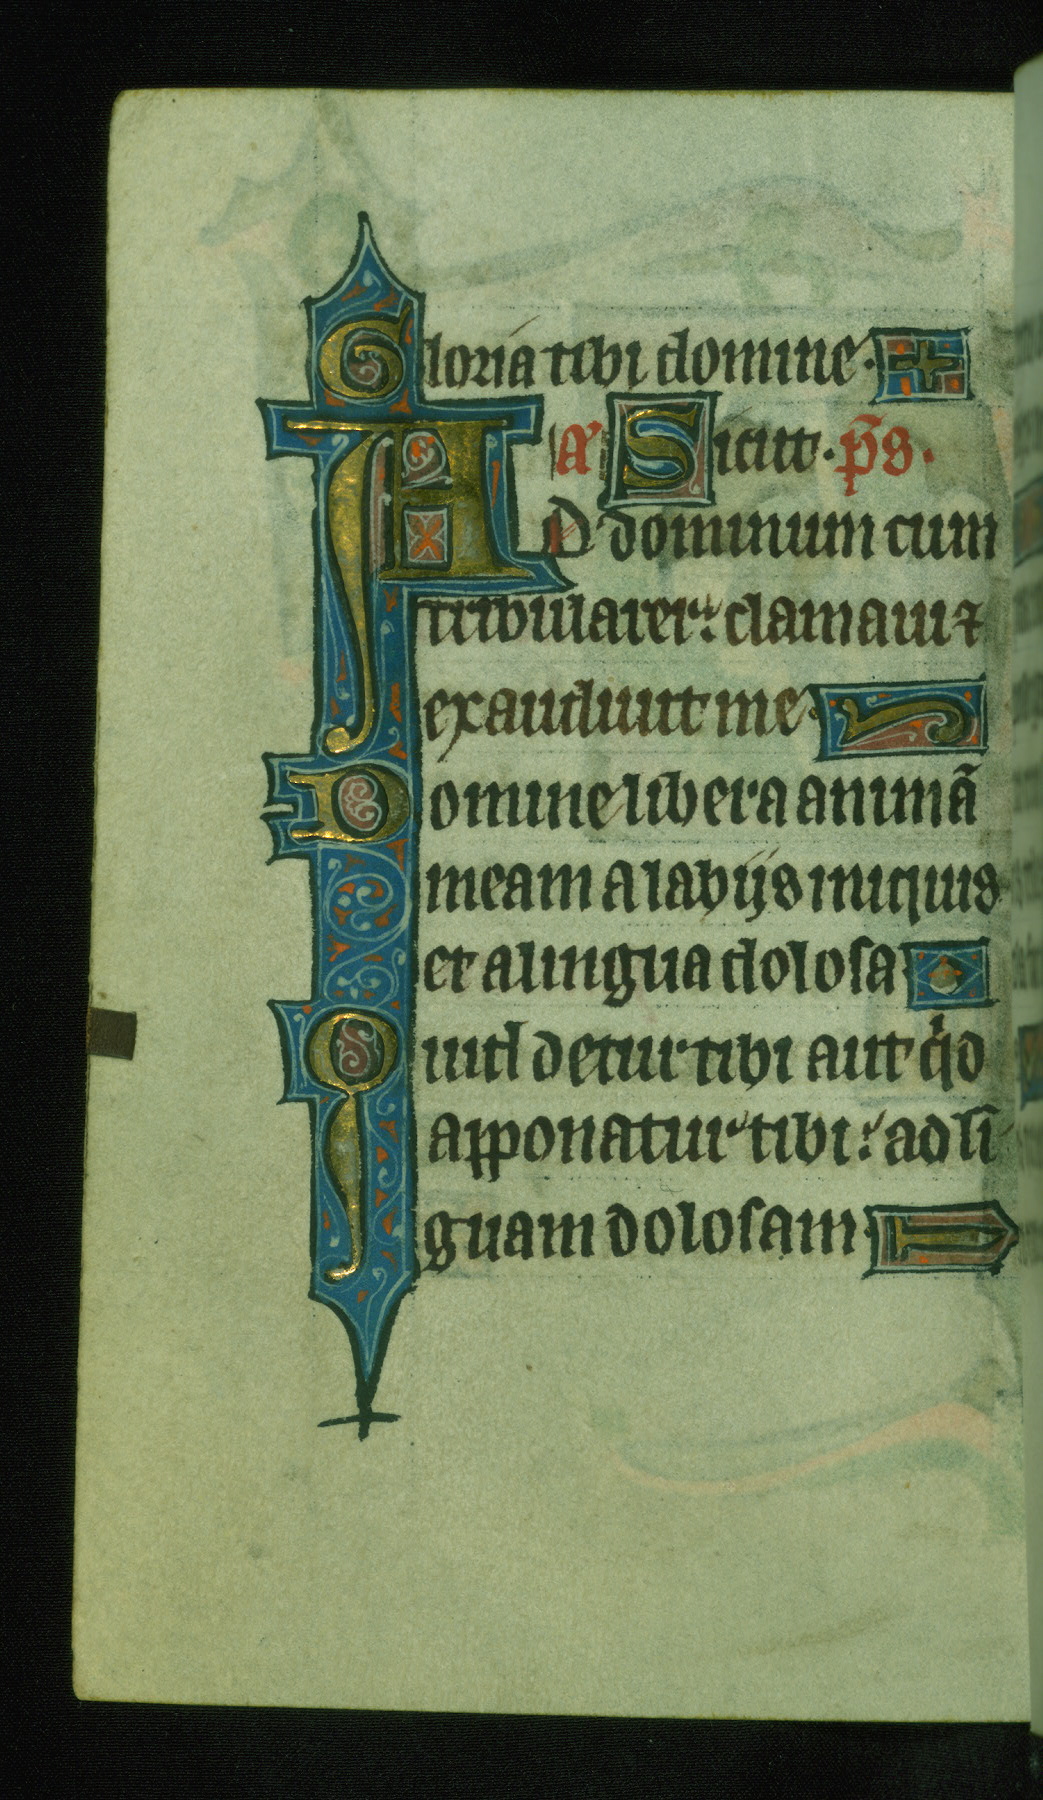 Gloria tibi domine.
a͛ Sicut. p̄s.
AD dominum cum
tribularer: clamaui ⁊
exaudiuit me.
Domine libera animā
meam a labijs iniquis
et a lingua dolosa
Quid detur tibi aut qͥd
apponatur tibi: ad lī
guam dolosam.